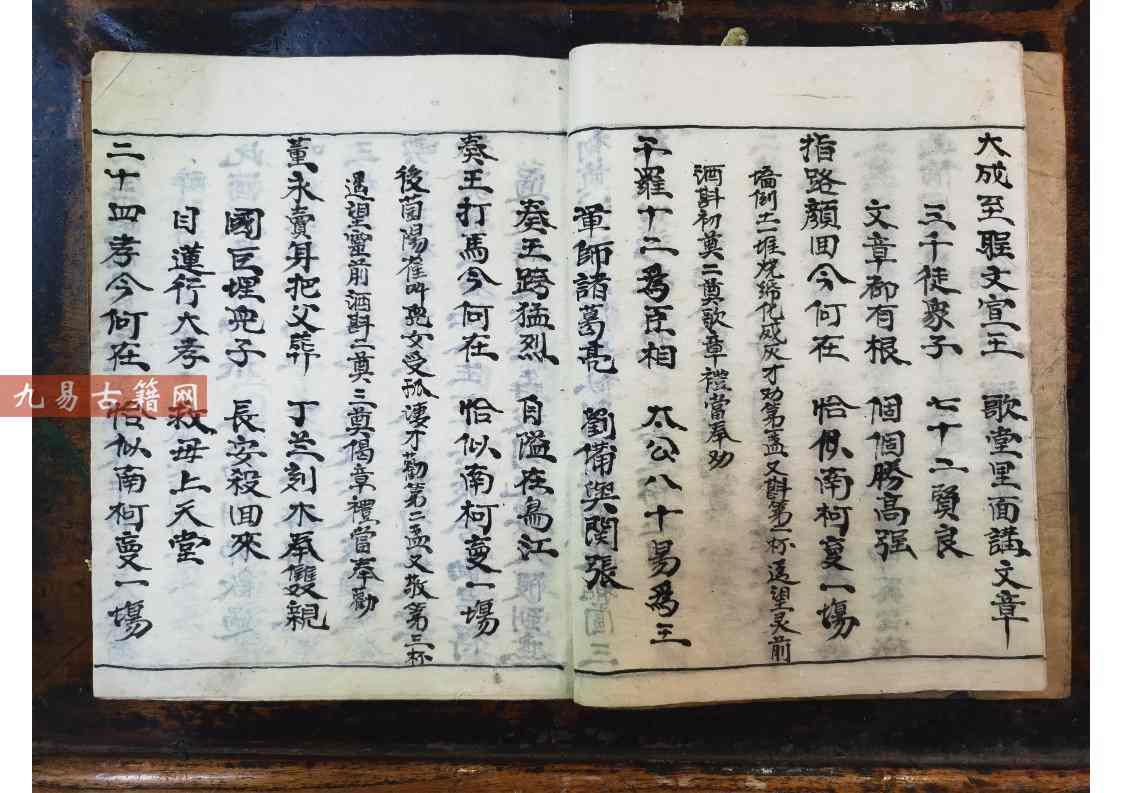 大成至聖文宣王 歌堂里面講文章
三千徒衆子 七十二賢良
文章都有根 個個勝高强
指路顔回今何在 恰似南柯夢一塲
墙倒土堆燒締化成灰才劝第一盃又斟第二杯遥望灵前
酒斟初奠二奠歌章禮當奉劝
干羅十二為臣相 太公八十易為王
軍師諸葛亮 劉備與関張
秦王跨猛烈 自隘在烏江
秦王打馬今何在 恰似南柯夢一塲
後茵陽崔叫兜女受孤凄才勸第二盃又敬第三杯
遥望靈前酒斟二奠三奠偈章禮當奉勸
董永賣身把父葬 丁兰刻木奉雙親
國巨埋兜子 長安殺回來
目蓮行大孝 救母上天堂
二十四孝今何在 恰似南柯夢一塲
九易古籍网